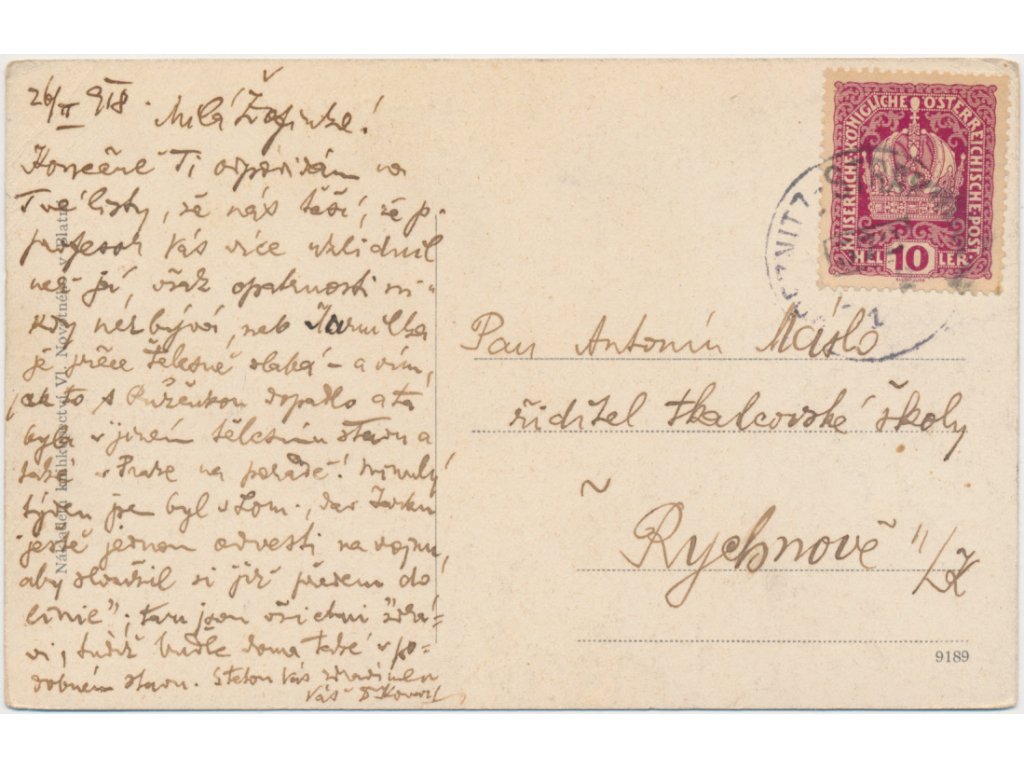 26/II 918.
Milá Žofinko!
Konečně Ti odpovídám na
Tvé listy, že nás těší, že p.
profesor Vás více uklidnil
než já, však opatrnosti ni-
kdy nezbývá, neb Jarmilka
je přece tělesně slabá – a vím,
jak to s Růženkou dopadlo a ta
byla v jiném tělesném stavu a
také v Praze na poradě! Minulý
týden jsem byl v Lom.,
ještě jednou odvésti na vojnu,
aby sloužil si již předem do
linie"; tam jsou všichni zdrá-
vi, tudíž bude doma také v po-
dobném stavu. Vás
Váš
Nákladem knihkupectví Vl. Novotného v Blatn
KAISERLICHE KÖNIGLICHE ÖSTERREICHISCHE POST
HEL 10 LER
Pan Antonín Máslo
řiditel tkalcovské školy
Rychnově n/K
9189